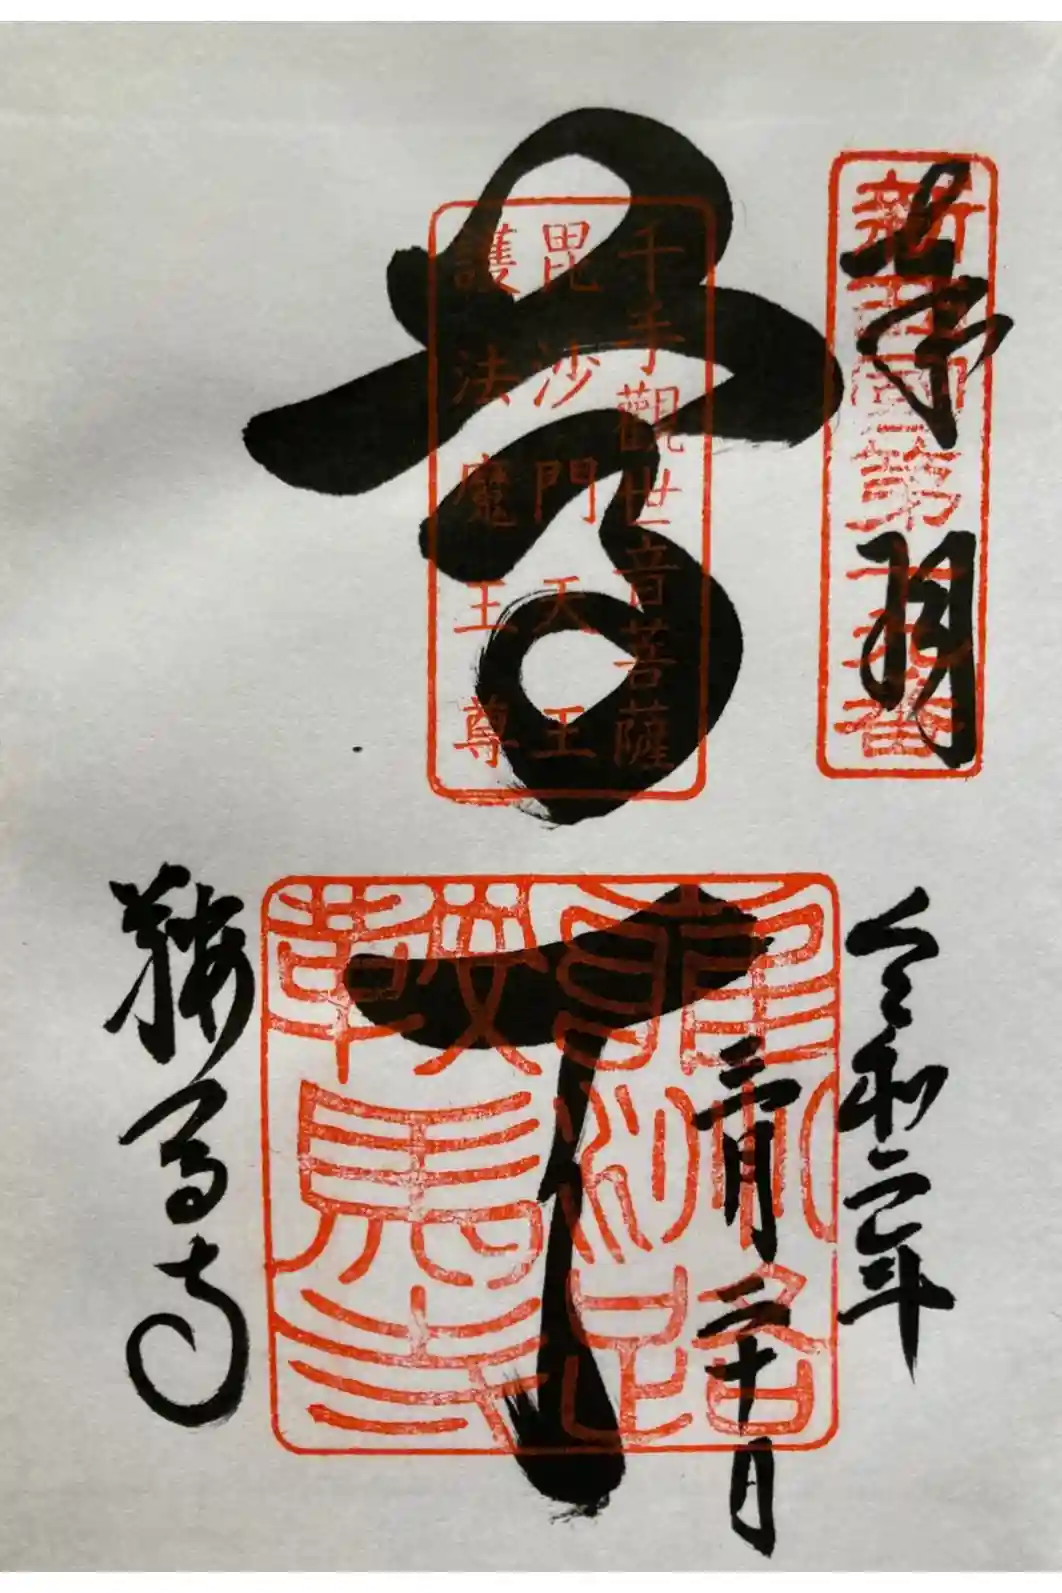 奉
拝
新西國第十九番
令和二年
三月二十日
尊天
千手觀世音菩薩
毘沙門天王
護法魔王尊
雍州路
鞍馬寺
鞍馬寺